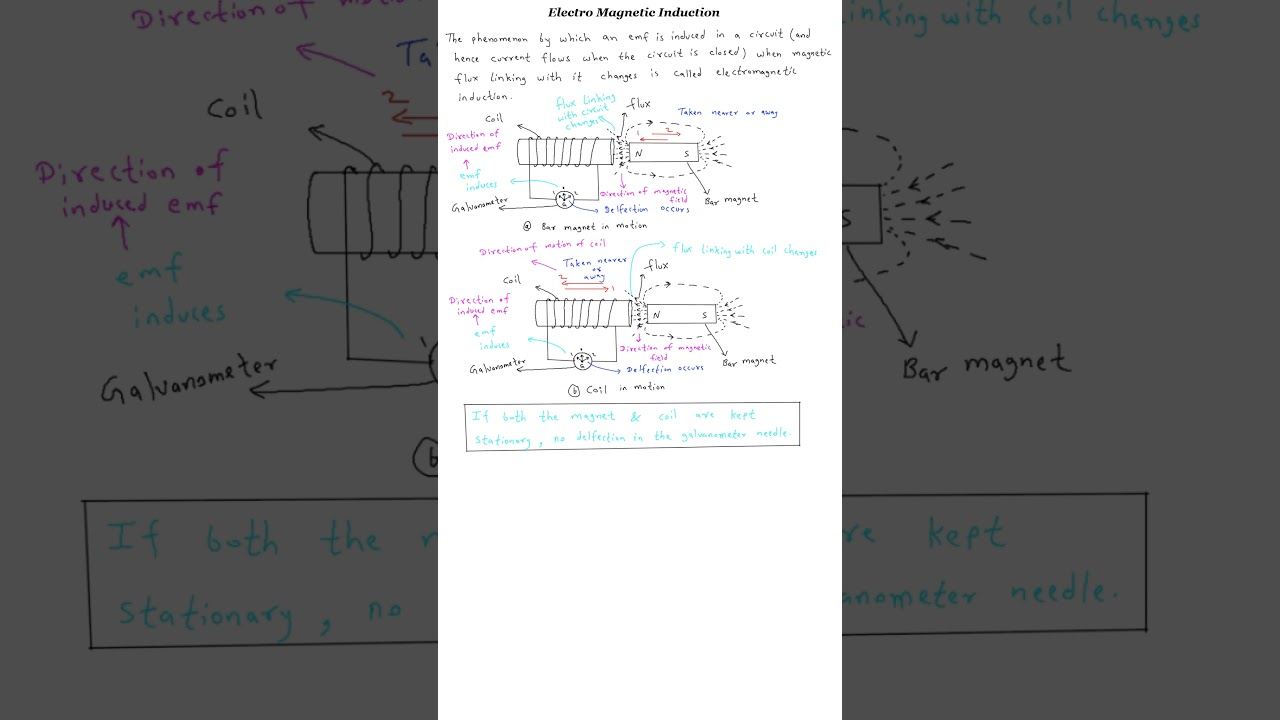 Electro Magnetic Induction
The phenomenon by which an emf is induced in a circuit (and
hence current flows when the circuit is closed) when magnetic
flux linking with it changes is called electromagnetic
induction.
flux linking
with circuit
changes
flux
Taken nearer or away
Coil
Direction of
induced emf
1 2
N S
emf
induces
1 2
G
Direction of magnetic
field
Bar magnet
Galvanometer
Delfection occurs
(a) Bar magnet in motion
Direction of motion of coil
flux linking with coil changes
Taken nearer
or
away
flux
Coil
2
1
Direction of
induced emf
N S
emf
induces
Direction of magnetic
field
Bar magnet
Galvanometer
G
Delfection occurs
(b) Coil in motion
If both the magnet & coil are kept
stationary, no delfection in the galvanometer needle.
Direction of motion
Ta
Coil
2
Direction of
induced emf
emf
induces
Galvanometer
(b
If both the
stationary, no
linking with coil changes
S
ic
Bar magnet
re kept
anometer needle.